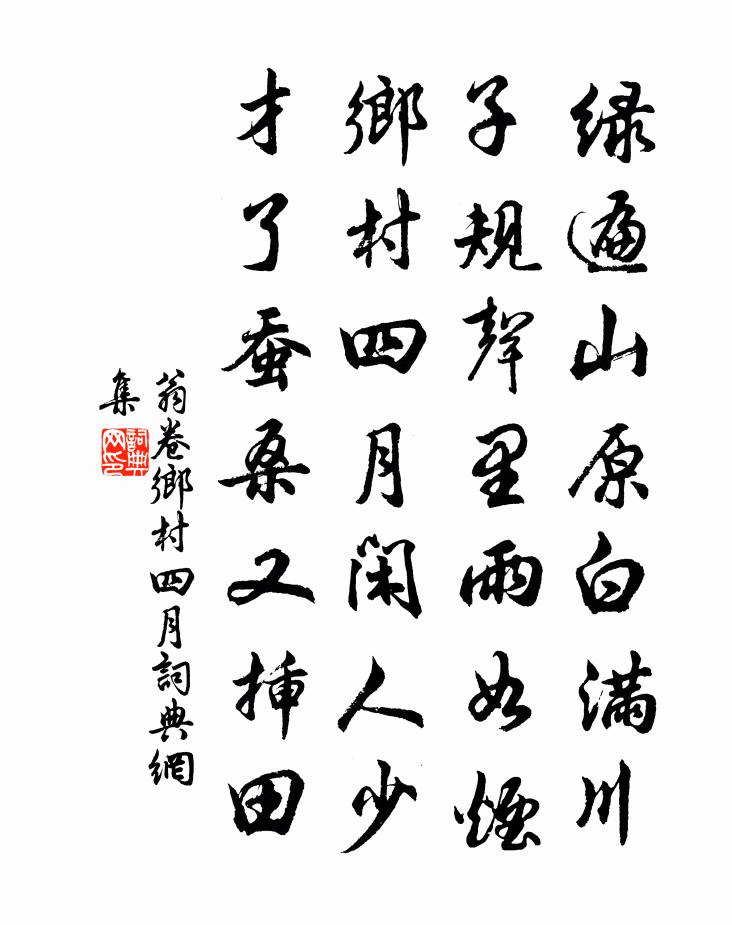 緑遍山原白滿川
子規聲里雨如煙
鄉村四月閑人少
才了蚕桑又揷田
翁卷鄉村四月詞典網
集
詞典
网印